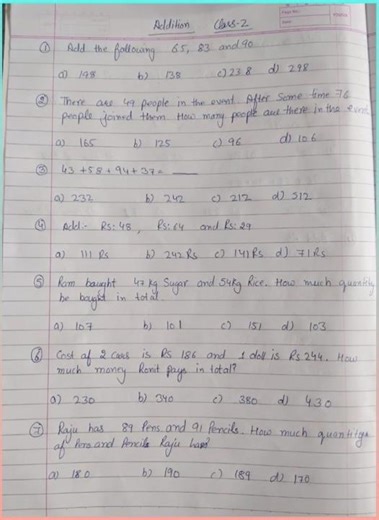 Addition Class-2
① Add the following 65, 83 and 90
a) 198 b) 138 c) 238 d) 298
② There are 49 people in the event. After Some time 76
people joined them. How many people are there in the event
a) 165 b) 125 c) 96 d) 106
③ 43 + 58 + 94 + 37 = ____
a) 232 b) 242 c) 212 d) 512
④ Add:- Rs: 48, Rs: 64 and Rs: 29
a) 111 Rs b) 242 Rs c) 141 Rs d) 71 Rs
⑤ Ram baught 47 kg Sugar and 54kg Rice. How much quantity
he baught in total.
a) 107 b) 101 c) 151 d) 103
⑥ Cost of 2 cars is Rs 186 and 1 doll is Rs 244. How
much money Ronit pays in total?
a) 230 b) 340 c) 380 d) 430
⑦ Raju has 89 Pens and 91 Pencils. How much
of Pens and Pencils Raju has?
a) 180 b) 190 c) 189 d) 170